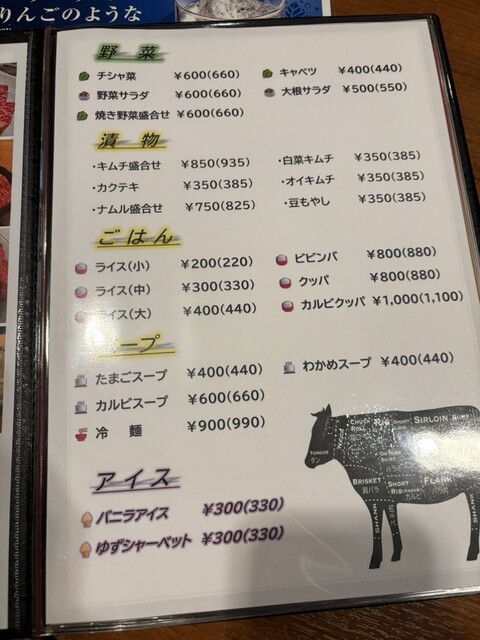 りんごのような
野菜
チシャ菜 ¥600(660) キャベツ ¥400(440)
野菜サラダ ¥600(660) 大根サラダ ¥500(550)
焼き野菜盛合せ ¥600(660)
漬物
・キムチ盛合せ ¥850(935) ・白菜キムチ ¥350(385)
・カクテキ ¥350(385) ・オイキムチ ¥350(385)
・ナムル盛合せ ¥750(825) ・豆もやし ¥350(385)
ごはん
ライス(小) ¥200(220) ビビンパ ¥800(880)
ライス(中) ¥300(330) クッパ ¥800(880)
ライス(大) ¥400(440) カルビクッパ ¥1,000(1,100)
スープ
たまごスープ ¥400(440) わかめスープ ¥400(440)
カルビスープ ¥600(660)
冷麺 ¥900(990)
アイス
バニラアイス ¥300(330)
ゆずシャーベット ¥300(330)
CHUCK RIB SIRLOIN
TONGUE
タン
BRISKET SHORT FLANK
肩バラ RIB カルビ バラ肉
SHANK SHANK